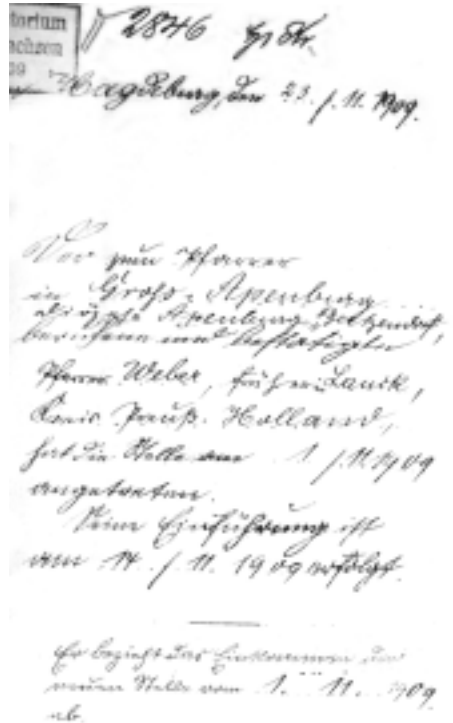 torium
chsen
09
2846
Magdeburg, den 23. / 11. 1909.
Der zum Pfarrer
in Groß-Apenburg
Apenburg
berufene und bestätigte
Pfarrer Weber, früher in Lauck,
Kreis Preuß. Holland,
hat die Stelle am 1 / 11. 1909
angetreten.
Seine Einführung ist
am 14. / 11. 1909 erfolgt.
Er bezieht das Einkommen der
neuen Stelle vom 1. 11. 1909
ab.